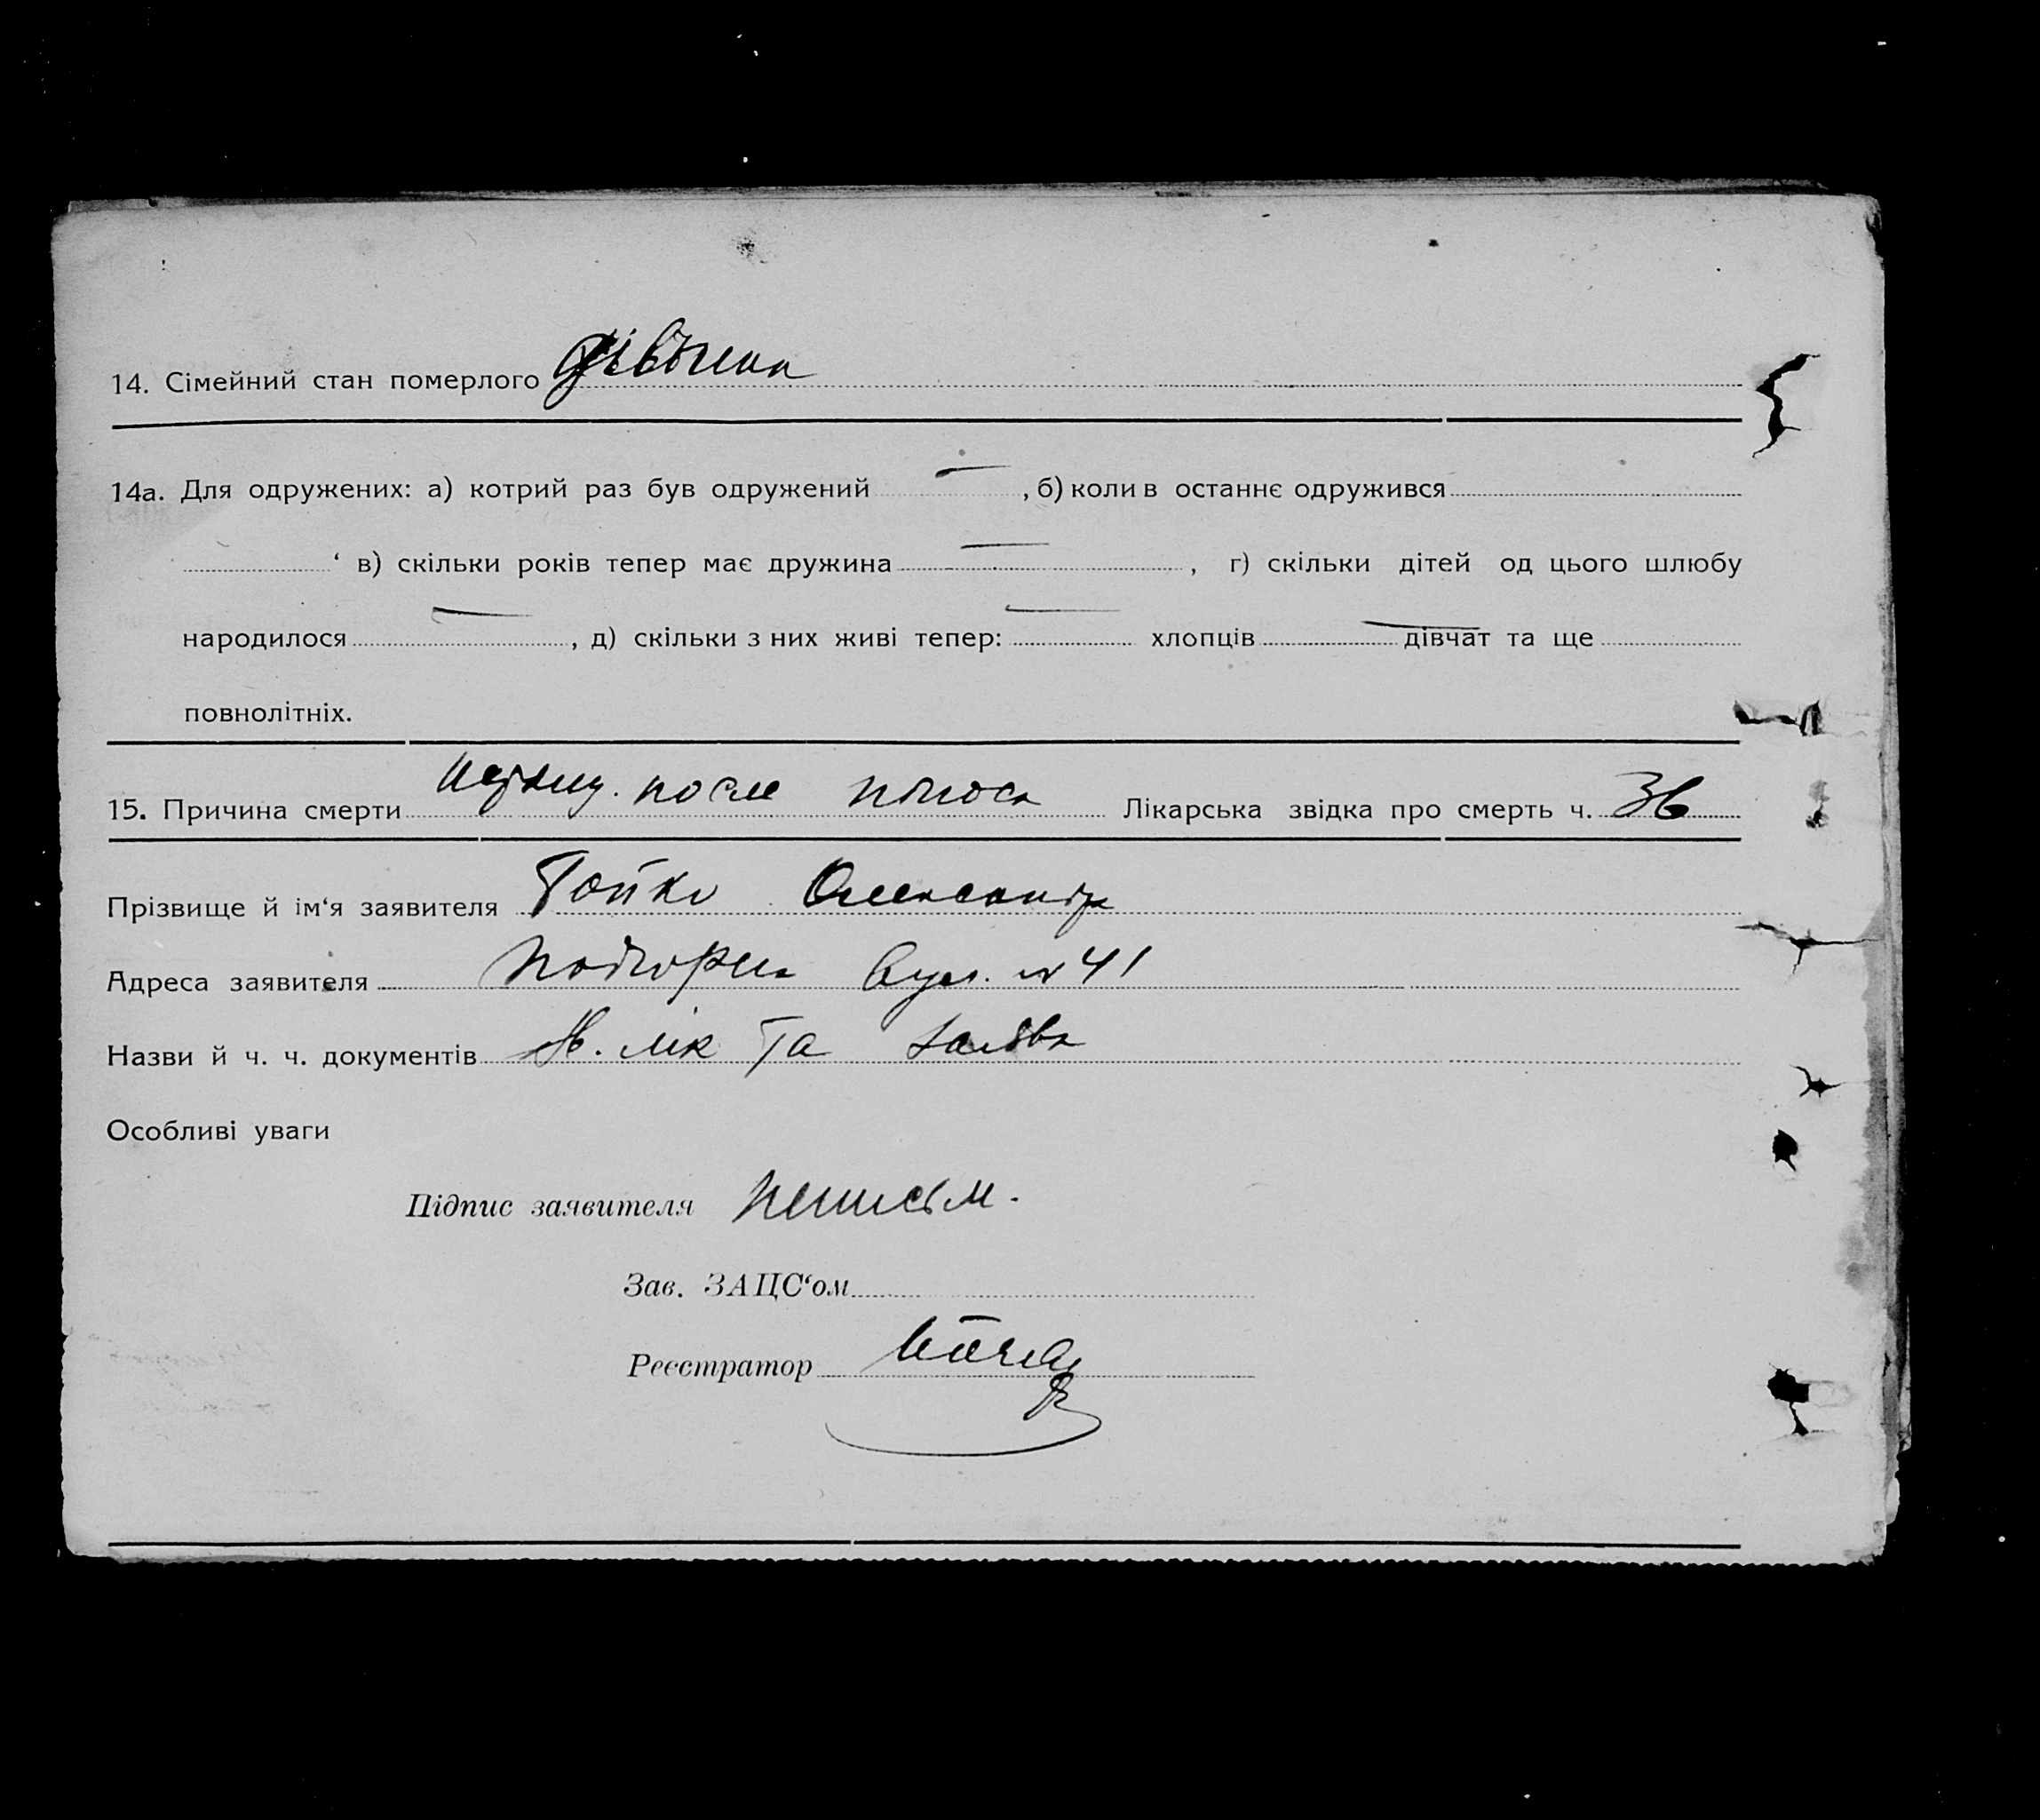 14. Сімейний стан померлого дівчина
14а. Для одружених: а) котрий раз був одружений — , б) коли в останнє одружився
‘ в) скільки років тепер має дружина — , г) скільки дітей од цього шлюбу
народилося — , д) скільки з них живі тепер: — хлопців — дівчат та ще
повнолітніх.
15. Причина смерти после поноса Лікарська звідка про смерть ч. 36
Прізвище й ім‘я заявителя Гойко Олександр
Адреса заявителя Подгорна вул. № 41
Назви й ч. ч. документів лік та заява
Особливі уваги
Підпис заявителя неписьм.
Зав. ЗАЦС‘ом
Реєстратор